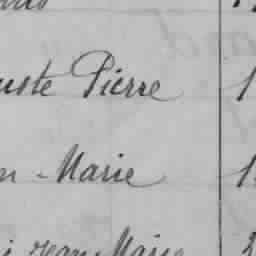 uste Pierre 1
n-Marie 1
i Jean Marie 2